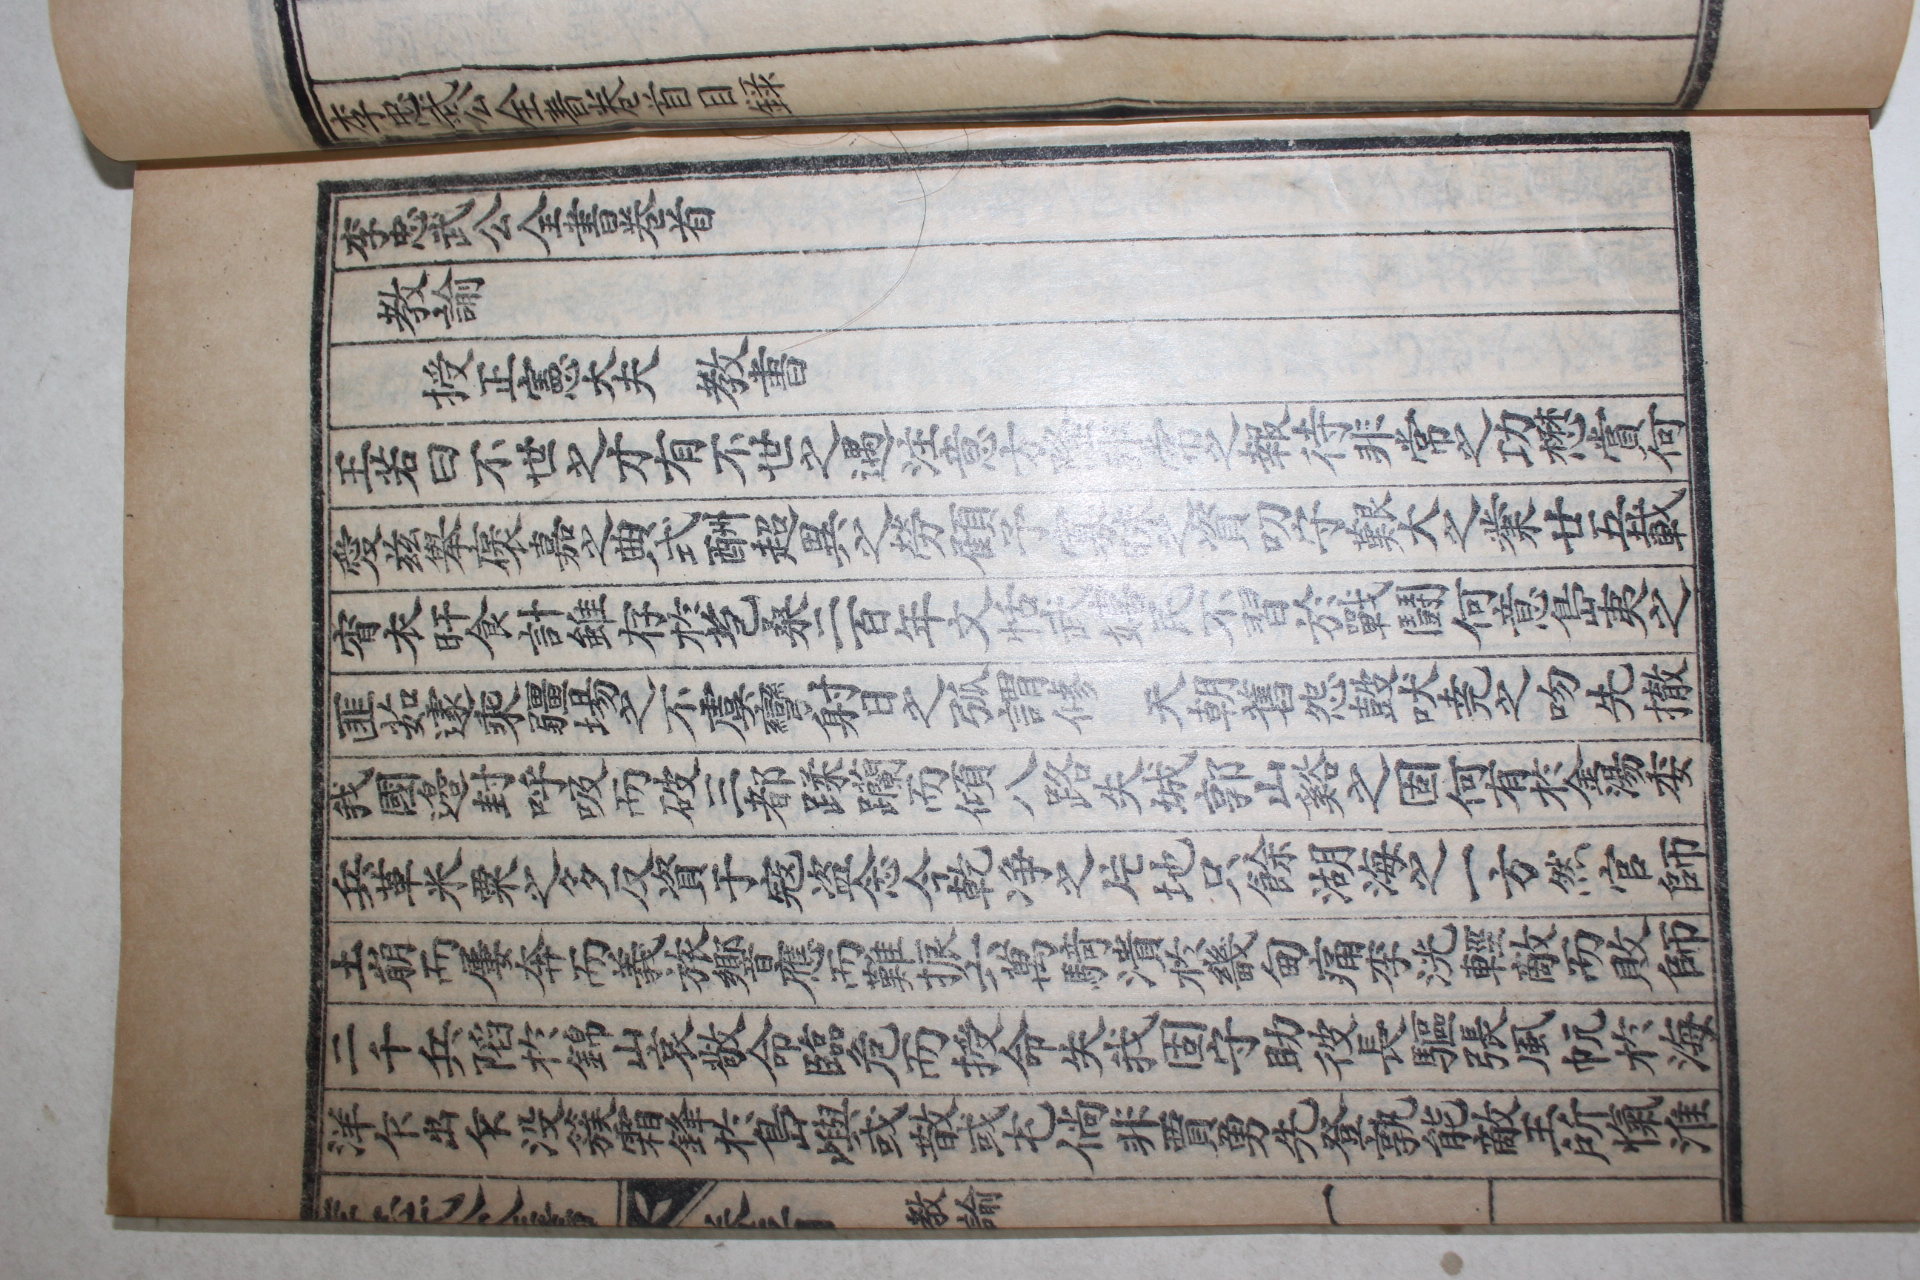 李忠武公全書卷首目錄
李忠武公全書卷首
教諭
授正憲大夫 教書
王若曰不世之才有不世之遇注意方隆非常之報待非常之功懋賞何
愛茲舉褒嘉之典式酬超異之勞顧予寡昧之資叨守艱大之業廿五載
宵衣旰食計雖存於苞桑二百年文恬武嬉民不習於戰鬪何意島夷之
匪茹遽乘疆場之不虞彎射日之弧謂修 天朝舊怨鼓吠堯之吻先撤
我國邊封呼吸而破三都蹂躪而傾八路失城郭山谿之固何有於金湯委
兵革米粟之多反資于寇盜念今乾淨之片地只餘湖海之一方然官師
土崩而屢奔而義旅響應而難振六萬騎潰於畿甸痛李洸輕敵而敗師
二千兵陷於錦山哀敬命臨危而授命失我固守助彼長驅張風帆於海
洋乍出乍沒簇霜鋒於島嶼或散或屯倘非賈勇先登孰能敵王所愾淮
教諭 一